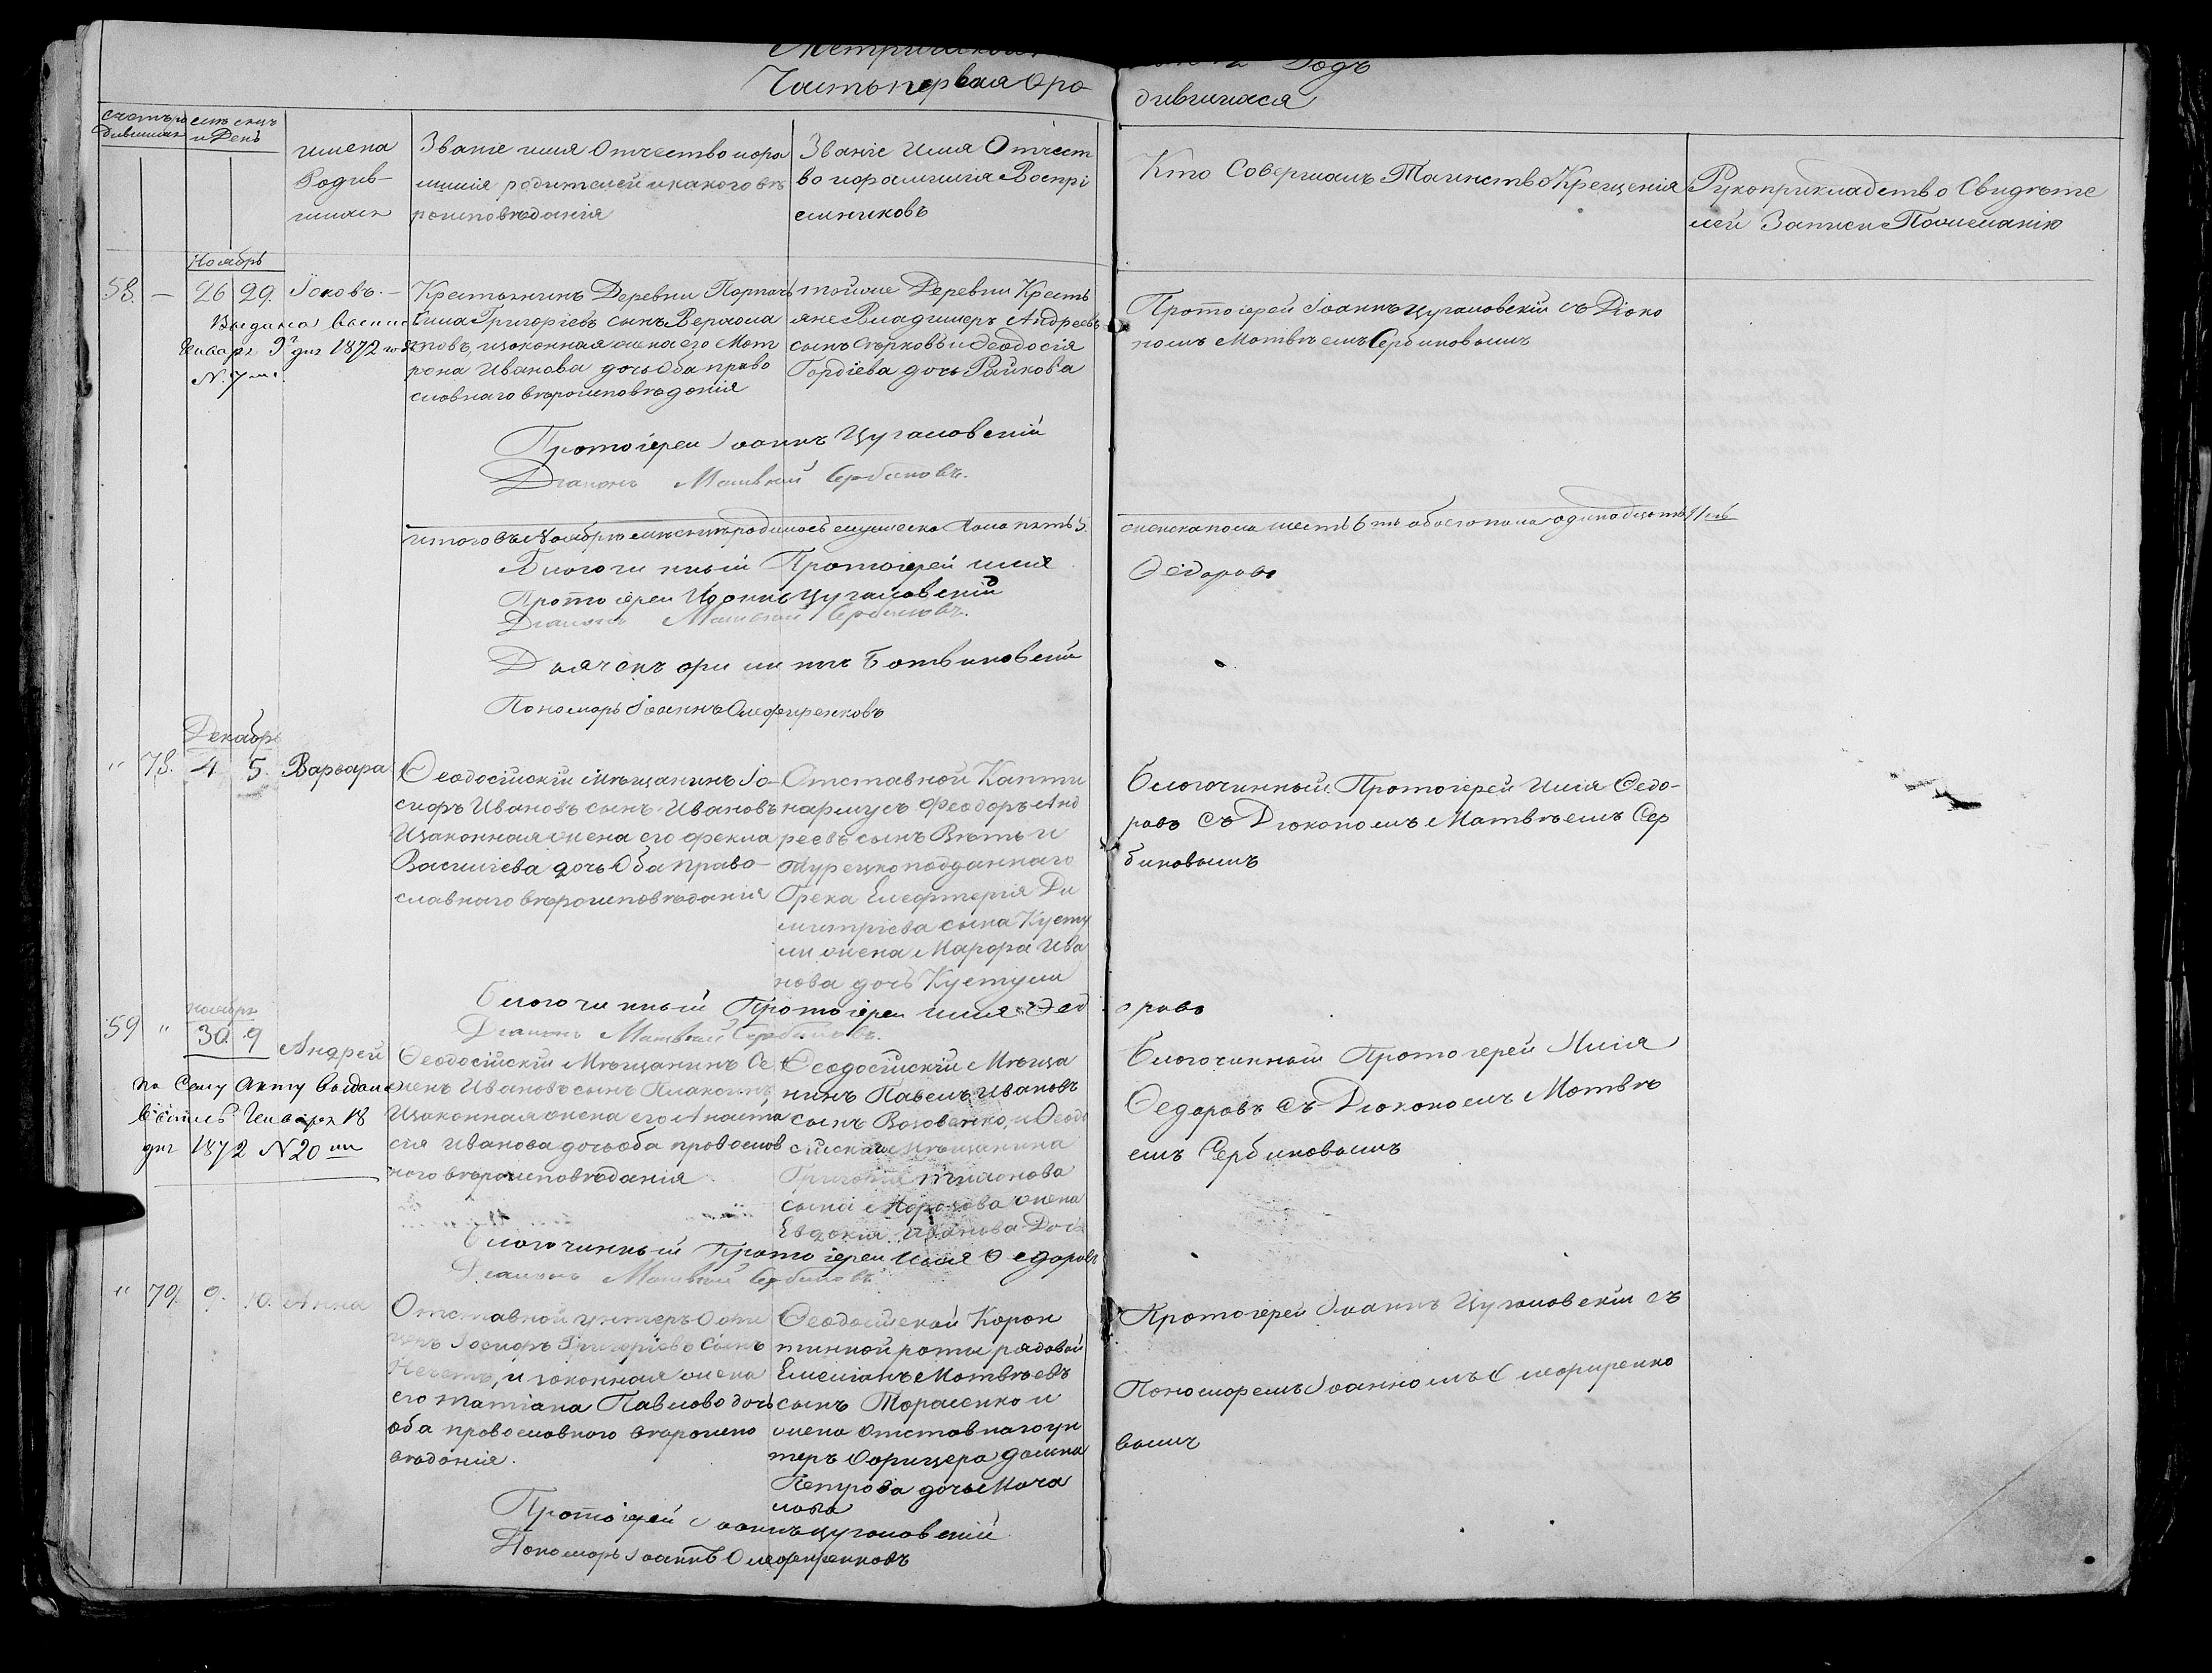 Часть первая о ро
дившихся
Годъ
Счетъ ро
дившихся
месяцъ
и День
имена
Родив-
шихся
Званіе имя Отчество и фа
милія родителей и какого вѣ
роисповѣданія
Званіе Имя Отчест
во и фамилія Воспрі
емниковъ
Кто Совершалъ Таинство Крещенія
Рукоприкладство Свидѣте
лей Записи По желанію
Ноябрь
58. — 26 29. Іаковъ. —
Выдана выпис
Генваря 9го дня 1872 года
N. 7-мъ.
Крестьянинъ Деревни
Сила Григоріевъ сынъ
и законная жена его Мат
рона Иванова дочь Оба право
славнаго вѣроисповѣданія
тойже Деревни Кресть
яне Владимеръ Андреевъ
сынъ и Феодосія
Гордіева дочь Райкова
Протоіерей Іоаннъ Цугаловскій съ Діако
номъ Матвѣемъ Сербиновымъ
Протоіерей Іоаннъ Цугаловскій
Діаконъ Матвѣй Сербиновъ.
Итого въ Ноябрѣ месяцѣ родилось мужеска пола пять 5.
женска пола шесть 6ть обоего пола одинадцать 11ть
Благочинный Протоіерей Илія
Ѳедоровъ
Протоіерей Іоаннъ Цугаловскій
Діаконъ Матвѣй Сербиновъ.
Дьячекъ Ботвиновскій
Пономарь Іоаннъ Олефиренковъ
Декабрь
" 78. 4 5. Варвара
Ѳеодосійскій Мѣщанинъ Іо-
сифъ Ивановъ сынъ Ивановъ
И законная жена его Фекла
Василіева дочь Оба право-
славнаго вѣроисповѣданія
Отставной Капти
нармусъ Феодоръ Анд
реевъ сынъ и
Турецко подданнаго
Грека Елефтерія Ди
митріева сына Кусту
ли жена Марфа Ива
нова дочь Кустули
Благочинный Протоіерей Илія Ѳедо-
ровъ Съ Діакономъ Матвѣемъ Сер
биновымъ
Благочинный Протоіерей Илія Ѳед
оровъ
Діаконъ Матвѣй Сербиновъ.
ноябрь
59 " 30. 9 Андрей
По Сему Акту выдана
выпись Генваря 18
дня 1872 N 20 мъ
Ѳеодосійскій Мѣщанинъ Се
менъ Ивановъ сынъ
И законная жена его Анаста
сія Иванова дочь оба православ
ного вѣроисповѣданія
Ѳеодосійскій Мѣща
нинъ Павелъ Ивановъ
сынъ и Ѳеодо
сійскаго Мѣщанина
Григорія
сына Морозова жена
Евдокія Иванова Дочь
Благочинный Протоіерей Илія
Ѳедоровъ Съ Діакономъ Матвѣ
емъ Сербиновымъ
Благочинный Протоіерей Илія Ѳедоровъ
Діаконъ Матвѣй Сербиновъ
" 79. 9. 10. Анна
Отставной унтеръ Офи
церъ Іосифъ Григоріевъ Сынъ
и законная жена
его Татіана Павлова дочь
оба православного вѣроиспо
вѣданія.
Ѳеодосійской Каран
тинной роты рядовой
Емеліанъ Матвѣевъ
сынъ Тарасенко и
жена Отставнаго ун
теръ Офицера Домна
Петрова дочь Моча
лова
Протоіерей Іоаннъ Цугаловскій съ
Пономаремъ Іоанномъ Олефиренко
вымъ
Протоіерей Іоаннъ Цугаловскій
Пономарь Іоаннъ Олефиренковъ